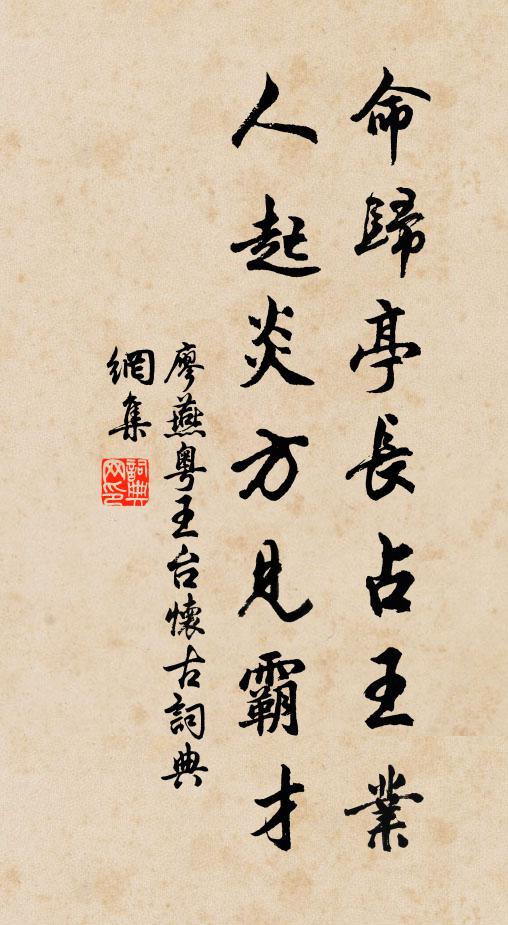 命歸亭長占王業
人起炎方見霸才
廖燕粵王台懷古詞典
網集
詞典网印